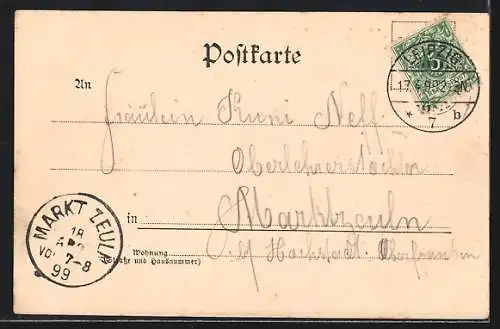 Postkarte
LEIPZIG
5
17.4.99.2-3N.
* 7 b
An
Fräulein Kuni Neff
Oberlehrerstochter
in Marktzeuln
b/ Hochstadt Oberfranken
Wohnung
(Straße und Hausnummer)
MARKT ZEULN
18
APR
VOR 7-8
99